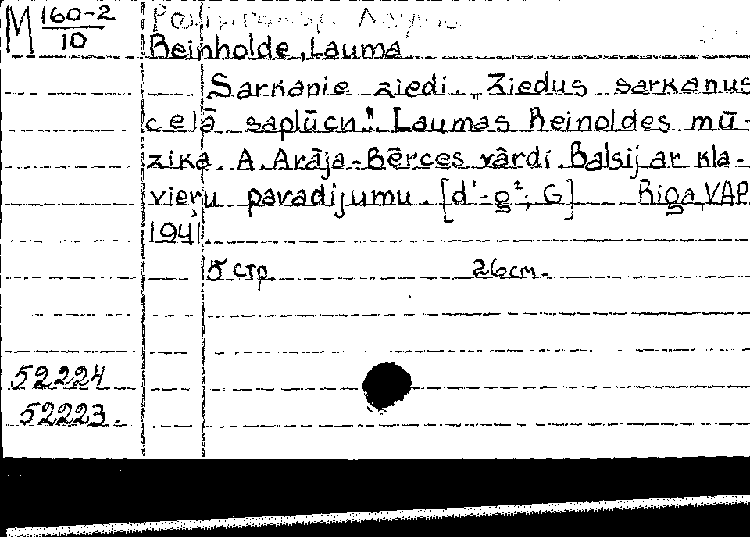 M 160-2
10
Reinholde, Lauma
Sarkanie ziedi. „Ziedus sarkanus
ceļā saplūcu". Laumas Reinoldes mū-
zika. A. Arāja-Bērces vārdi. Balsij ar kla-
vieru pavadijumu. [d'-g²; G] Rīga, VAP
1941
5 стр. 26 cm.
52224
52223.